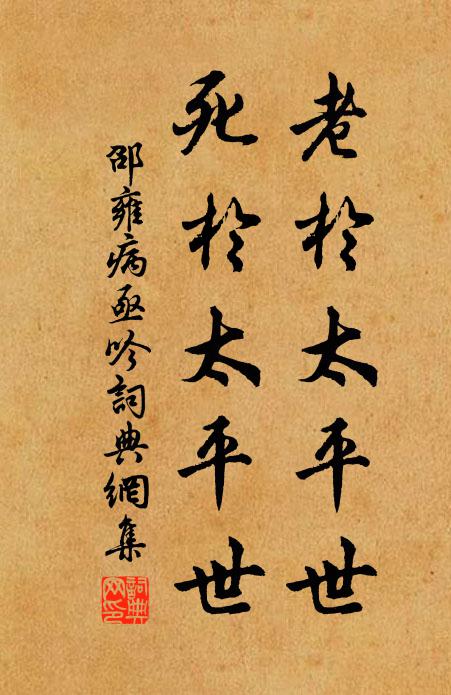 老於太平世
死於太平世
邵雍病亟吟詞典網集
詞典網印